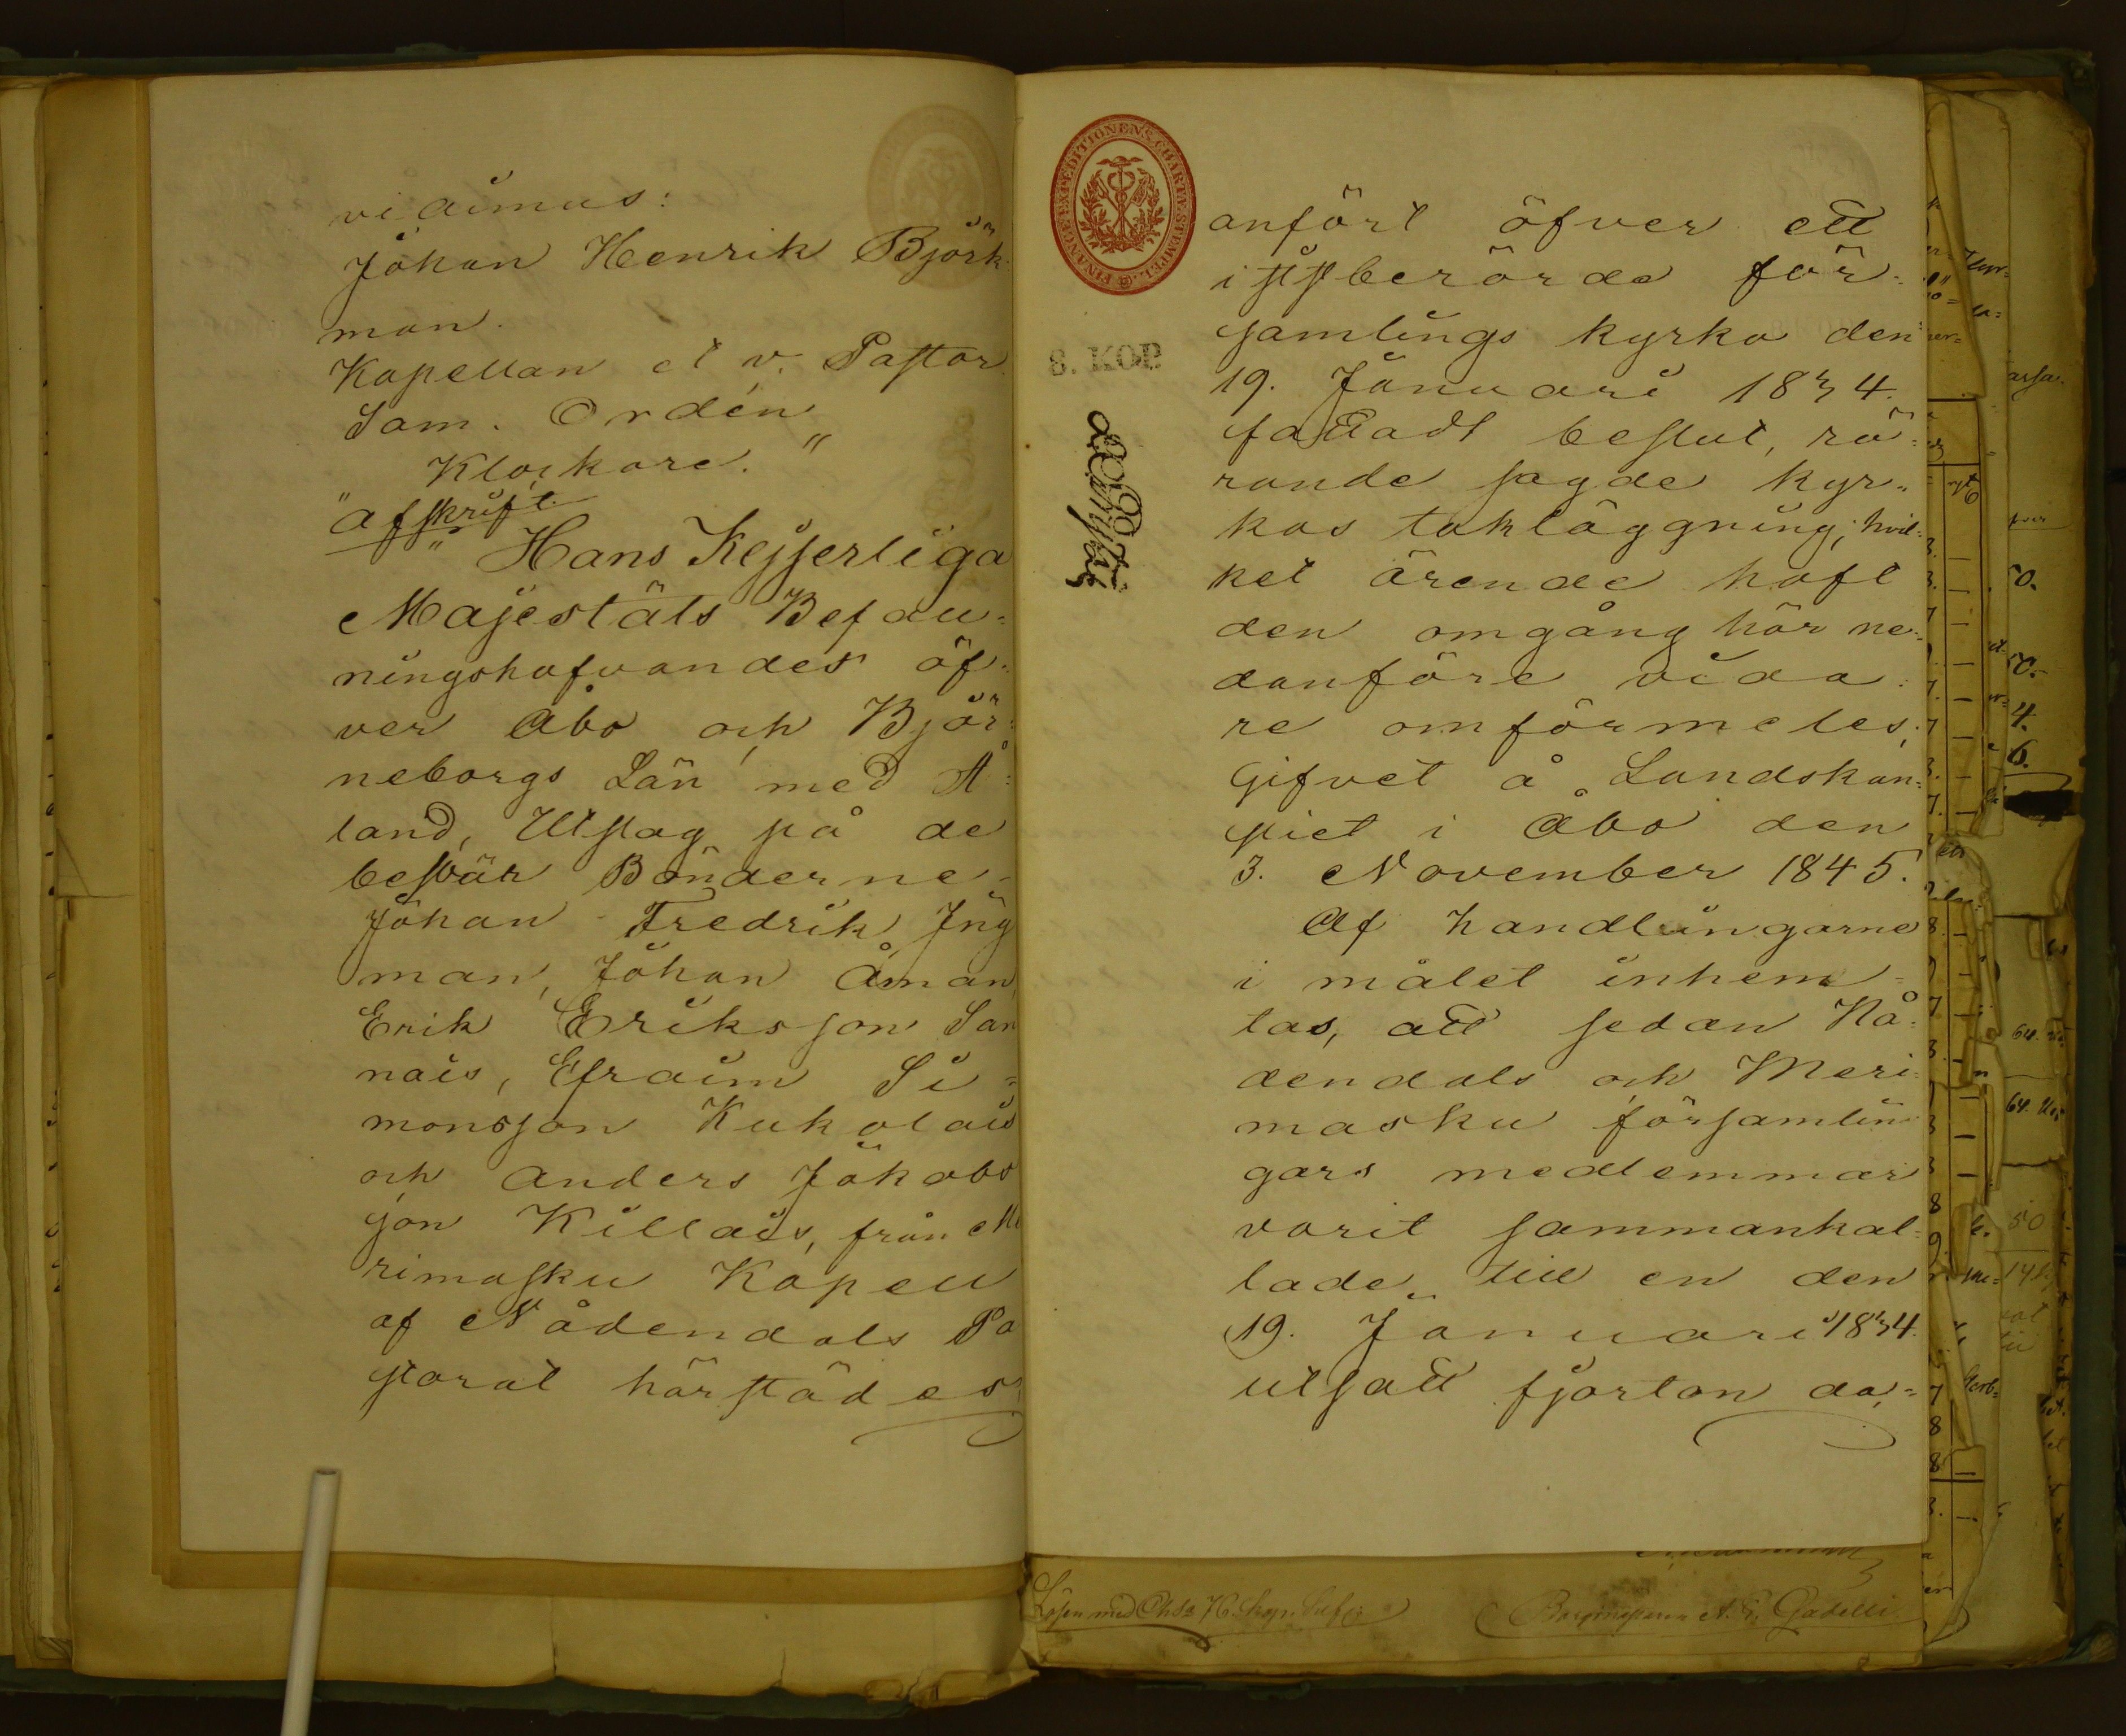 vidimus:
Johan Henrik Björk
man.
Kapellan et v. Pastor.
Sam. Ordén
Klockare."
"Afskrift.
"Hans Kejserliga
Majestäts Befall=
ningshafvandes öf=
ver Åbo och Björ=
neborgs Län med Å=
land, Utslag på de
besvär Bönderne
Johan Fredrik Ing
man, Johan Åman,
Erik Eriksson San
nais, Efraim Si=
monsson Kukolais
och Anders Jakobs
son Killais, från Me
rimasku Kapell
af Nådendals Pa
storat härstädes
FINANCEEXPEDITIONENS CHARTÆ STEMPEL.
8. KOP
anfört öfver ett
i sistberörde för=
samlings kyrka den
19. Januari 1834.
fattadt beslut, rö=
rande sagde kyr=
kas takläggning; hvil=
ket ärende haft
den omgång här ne=
danföre vida=
re omförmeles;
Gifvet å Landskan=
sliet i Åbo den
3. November 1845.
Af handlingarne
i målet inhem=
tas, att sedan Nå=
dendals och Meri=
masku församlin
gars medlemmar
varit sammankal=
lade till en den
19. Januari 1834.
utsatt fjorton da,=
Lösen med Ch. Sa 76. kop. Silf.
A. G. Gadelli